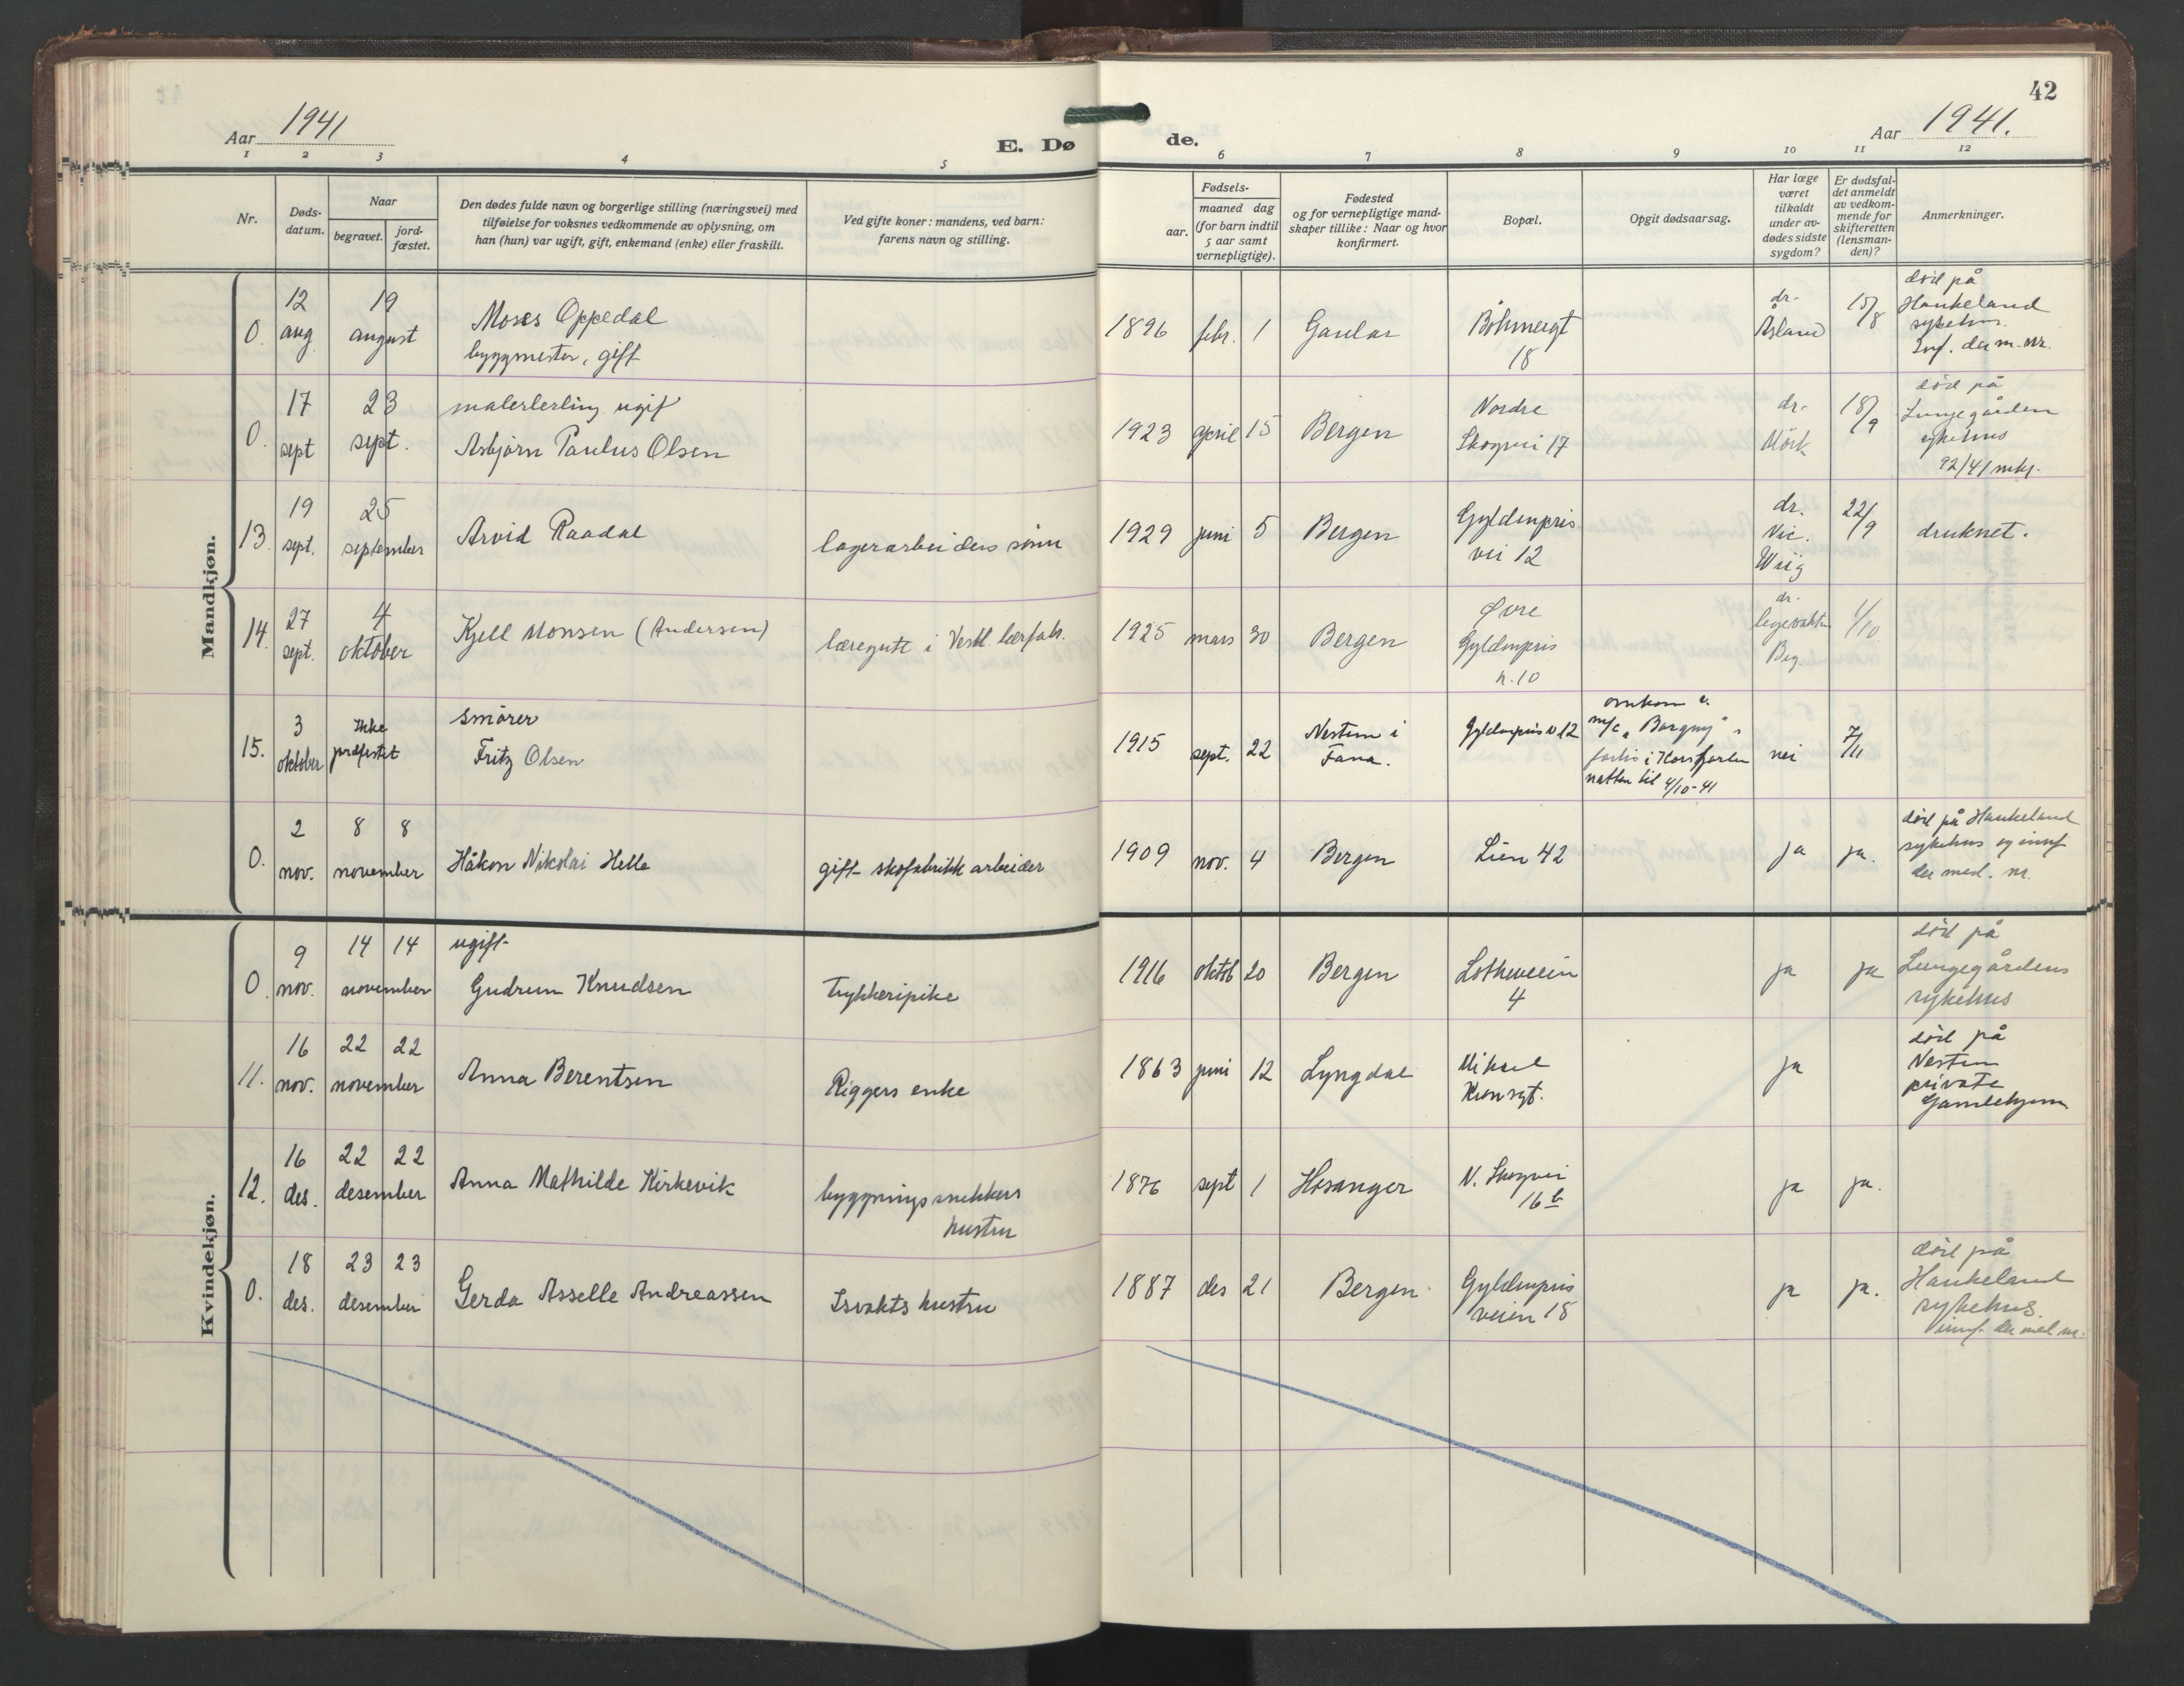 42
Aar 1941
E. Dø
de.
Aar 1941.
1 2 3 4 5 6 7 8 9 10 11 12
Nr.
Døds-
datum.
Naar
begravet.
jord-
fæstet.
Den dødes fulde navn og borgerlige stilling (næringsvei) med
tilføielse for voksnes vedkommende av oplysning, om
han (hun) var ugift, gift, enkemand (enke) eller fraskilt.
Ved gifte koner: mandens, ved barn:
farens navn og stilling.
Fødsels-
aar.
maaned dag
(for barn indtil
5 aar samt
vernepligtige).
Fødested
og for vernepligtige mand-
skaper tillike: Naar og hvor
konfirmert.
Bopæl.
Opgit dødsaarsag.
Har læge
været
tilkaldt
under av-
dødes sidste
sygdom?
Er dødsfal-
det anmeldt
av vedkom-
mende for
skifteretten
(lensman-
den)?
Anmerkninger.
Mandkjøn.
0.
12
aug
19
august
Moses Oppedal
byggmester, gift
1896 febr. 1
Gaular
Böhmergt
18
dr.
Åsland
15/8
död på
Haukeland
sykehus.
Inf. der m. nr.
0.
17
sept
23
sept.
malerlerling ugif
Asbjörn Paulus Olsen
1923 april 15
Bergen
Nordre
Skogvei 17
dr.
Mörk
18/9
död på
Lungegården
sykehus
92/41 mkj.
13.
19
sept.
25
september
Arvid Raadal
lagerarbeiders sönn
1929 juni 5
Bergen
Gyldenpris
vei 12
dr.
Nic.
Wiig
22/9
druknet.
14.
27
sept.
4
oktober
Kjell Monsen (Andersen)
læregutt i Vestl. lærfabr.
1925 mars 30
Bergen
Øvre
Gyldenpris
n. 10
dr.
legevakten
1/10
15.
3
oktober
Ikke
smörer
Fritz Olsen
1915 sept. 22
Nestun i
Fana.
Gyldenpris v 12
omkom
m/c „Borgny"
forlis i Korsfjorden
natten til 4/10-41
nei
7/11
0.
2
nov.
8 8
november
Håkon Nikolai Helle
gift skofabrikk arbeider
1909 nov. 4
Bergen
Lien 42
ja
ja.
död på Haukeland
sykehus og innf
der med. nr.
Kvindekjøn.
0.
9
nov.
14 14
november
ugift
Gudrun Knudsen
Trykkeripike
1916 oktob 20
Bergen
Lotheveien
4
ja
ja
död på
Lungegårdens
sykehus
11.
16
nov.
22 22
november
Anna Berentsen
Riggers enke
1863 juni 12
Lyngdal
Mikael
Kronsgt.
ja
död på
Nestun
private
Gamlehjem
12.
16
des.
22 22
desember
Anna Mathilde Kirkevik
byggningssnekkers
hustru
1876 sept 1
Hosanger
N. Skogvei
16 b
ja
ja.
0.
18
des.
23 23
desember
Gerda Asselle Andreassen
Isvakts hustru
1887 des 21
Bergen
Gyldenpris
veien 18
ja
ja.
död på
Haukeland
sykehus.
innf. der med nr.